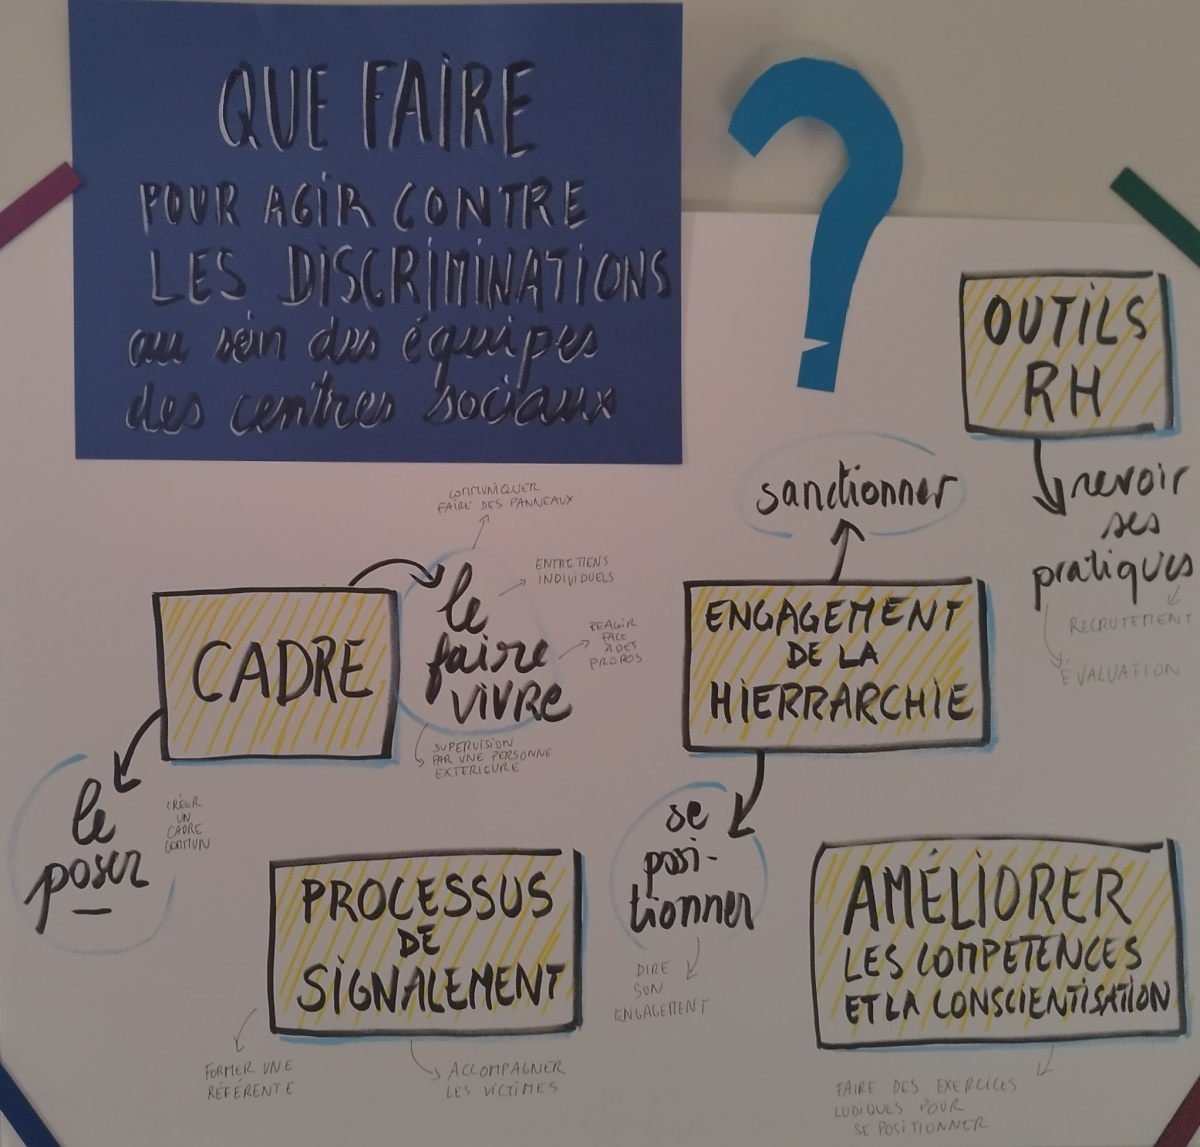 QUE FAIRE
POUR AGIR CONTRE
LES DISCRIMINATIONS
au sein des équipes
des centres sociaux
?
OUTILS
RH
revoir
ses
pratiques
RECRUTEMENT
ÉVALUATION
sanctionner
ENGAGEMENT
DE LA
HIERRARCHIE
se
posi-
tionner
DIRE
SON
ENGAGEMENT
COMMUNIQUER
FAIRE DES PANNEAUX
ENTRETIENS
INDIVIDUELS
le
faire
VIVRE
REAGIR
FACE
A DES
PROPOS
SUPERVISION
PAR UNE PERSONNE
EXTERIEURE
CADRE
le
poser
CRÉER
UN
CADRE
COMMUN
PROCESSUS
DE
SIGNALEMENT
FORMER UNE
RÉFÉRENTE
ACCOMPAGNER
LES VICTIMES
AMÉLIORER
LES COMPETENCES
ET LA CONSCIENTISATION
FAIRE DES EXERCICES
LUDIQUES POUR
SE POSITIONNER